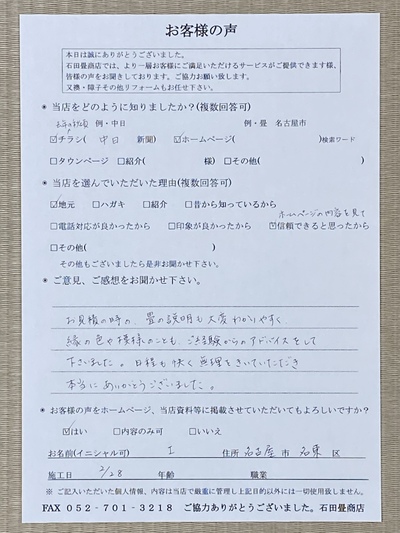 お客様の声
本日は誠にありがとうございました。
石田畳商店では、より一層お客様にご満足いただけるサービスがご提供できます様、
皆様の声をお聞きしております。ご協力お願い致します。
又襖・障子その他リフォームもお任せ下さい。
* 当店をどのように知りましたか？(複数回答可)
例・中日 例・畳 名古屋市
☑チラシ( 中日 新聞) ☑ホームページ( )検索ワード
□タウンページ □紹介( 様) □その他( )
* 当店を選んでいただいた理由(複数回答可)
☑地元 □ハガキ □紹介 □昔から知っているから
ホームページの内容を見て
□電話対応が良かったから □印象が良かったから ☑信頼できると思ったから
□その他( )
その他もございましたら是非お聞かせ下さい。
* ご意見、ご感想をお聞かせ下さい。
お見積の時の、畳の説明も大変わかりやすく
縁の色や模様のことも、ご経験からのアドバイスをして
下さいました。日程も快く無理をきいていただき
本当にありがとうございました。
* お客様の声をホームページ、当店資料等に掲載させていただいてもよろしいですか？
☑はい □内容のみ可 □いいえ
お名前(イニシャル可) I 住所 名古屋 市 名東 区
施工日 2/28 年齢 職業
※ ご記入いただいた個人情報、内容は当店で厳重に管理し上記目的以外には一切使用致しません。
FAX 052-701-3218 ご協力ありがとうございました。石田畳商店